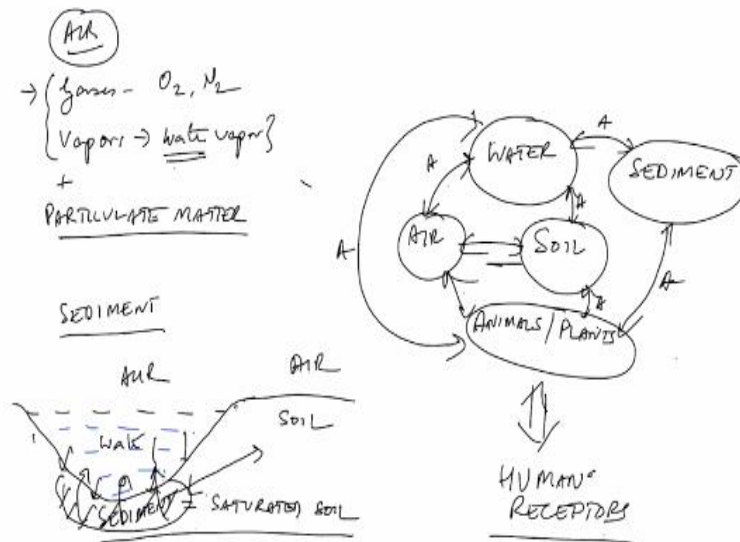 AIR
→ { Gases - O2, N2
Vapors → Water vapor }
+
PARTICULATE MATTER
SEDIMENT
AIR
AIR
SOIL
Wate
SEDIMENT = SATURATED SOIL
A
WATER
A
SEDIMENT
A
A
AIR
SOIL
A
A
A
ANIMALS / PLANTS
HUMAN
RECEPTORS